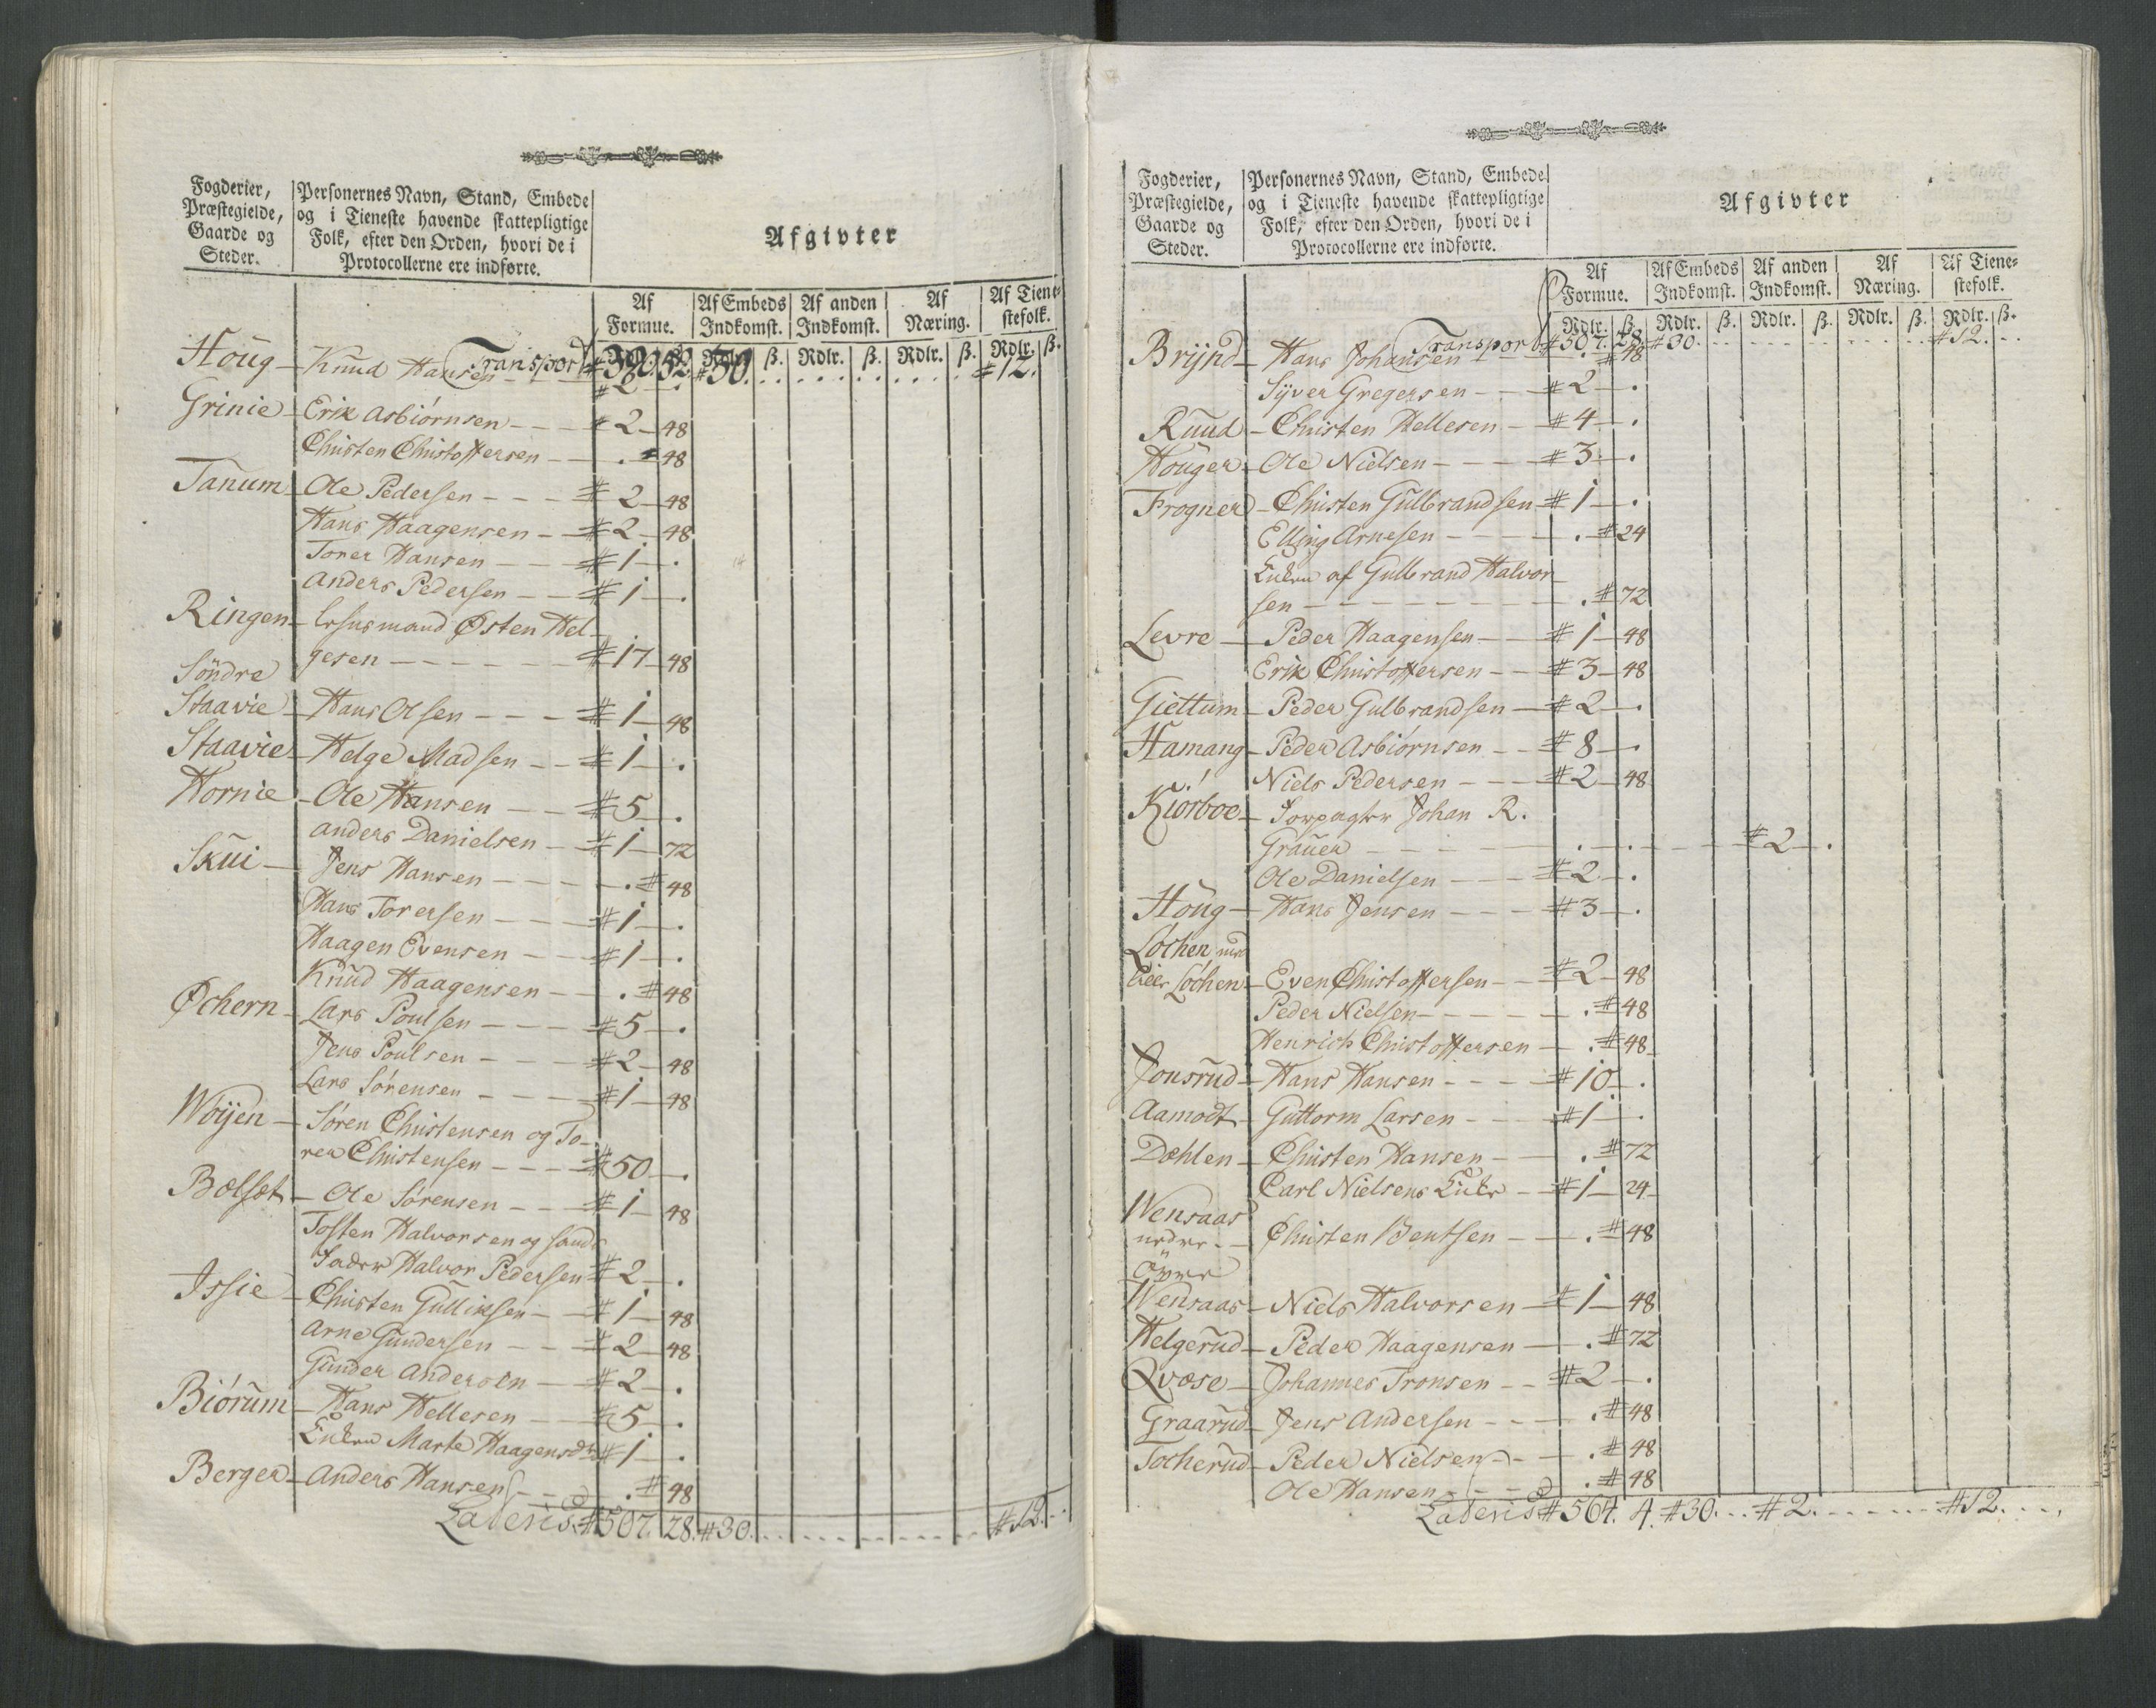 Fogderier, Præstegielde, Gaarde og Steder.
Personernes Navn, Stand, Embede og i Tieneste havende skattepligtige Folk, efter den Orden, hvori de i Protocollerne ere indførte.
Afgivter
Af Formue. Af Embeds Indkomst. Af anden Indkomst. Af Næring. Af Tienestefolk.
Rdlr. ß. Rdlr. ß. Rdlr. ß. Rdlr. ß. Rdlr. ß.
Transport # 390 52 # 30 # 12.
Houg – Knud Hansen # 2 .
Grinie – Erik Asbiørnsen – # 2 – 48
Christen Christoffersen – . # 48
Tanum – Ole Pedersen – # 2 – 48
Hans Haagensen – # 2 – 48
Torer Hansen – # 1 – .
Anders Pedersen – # 1 – .
Ringen – Lehnsmand Østen Hel-
gesen – # 17 – 48
Söndre
Staavie – Hans Olsen – # 1 – 48
Staavie – Helge Madsen – # 1 – .
Hornie – Ole Hansen – # 5 – .
Anders Danielsen – # 1 – 72
Skui – Jens Hansen – . # 48
Hans Torersen – # 1 – .
Haagen Evensen – # 1 – .
Knud Haagensen – . # 48
Øchern – Lars Poulsen – # 5 – .
Jens Poulsen – # 2 – 48
Lars Sørensen – # 1 – 48
Wöijen – Søren Christensen og To-
rer Christensen – # 50 – .
Bælset – Ole Sørensen – # 1 – 48
Tosten Halvorsen og hands
Fader Halvor Pedersen # 2 – .
Issie – Christen Gulliksen – # 1 – 48
Arne Gundersen – # 2 – 48
Gunder Andersen – # 2 – .
Biörum – Hans Hellesen – # 5 – .
Enken Marte Haagensdr # 1 – .
Berger – Anders Hansen – . # 48
Lateris # 507. 28. # 30. # 12.
Fogderier, Præstegielde, Gaarde og Steder.
Personernes Navn, Stand, Embede og i Tieneste havende skattepligtige Folk, efter den Orden, hvori de i Protocollerne ere indførte.
Afgivter
Af Formue. Af Embeds Indkomst. Af anden Indkomst. Af Næring. Af Tienestefolk.
Rdlr. ß. Rdlr. ß. Rdlr. ß. Rdlr. ß. Rdlr. ß.
Transport # 507. 28 # 30. # 12.
Brijnd – Hans Johansen . # 48
Syver Gregersen – # 2 – .
Ruud – Christen Hellesen – # 4 – .
Houger – Ole Nielsen – # 3 – .
Frogner – Christen Gulbrandsen # 1 – .
Elling Arnesen – . # 24
Enken af Gulbrand Halvor-
sen – . # 72
Levre – Peder Haagensen – # 1 – 48
Erik Christoffersen – # 3 – 48
Giettum – Peder Gulbrandsen – # 2 – .
Hamang – Peder Asbiørnsen – # 8 – .
Niels Pedersen – # 2 – 48
Kiörboe – Forpagter Johan R.
Grauer – . – . # 2 – .
Ole Danielsen – # 2 – .
Houg – Hans Jensen – # 3 – .
Lochen med
Lochen – Even Christoffersen – # 2 – 48
Peder Nielsen – . # 48
Henrich Christoffersen – . # 48
Jonsrud – Hans Hansen – # 10 – .
Aamodt – Guttorm Larsen – # 1 – .
Dæhlen – Christen Hansen – . # 72
Carl Nielsens Enke – # 1 – 24
Wensaas
nedre – Christen Bentsen – . # 48
Öwre
Wensaas – Niels Halvorsen – # 1 – 48
Helgerud – Peder Haagensen – . # 72
Qvæse – Johannes Tronsen – # 2 – .
Graarud – Jens Andersen – . # 48
Tocherud – Peder Nielsen – . # 48
Ole Hansen – . # 48
Lateris # 564. 4. # 30. # 2. # 12.